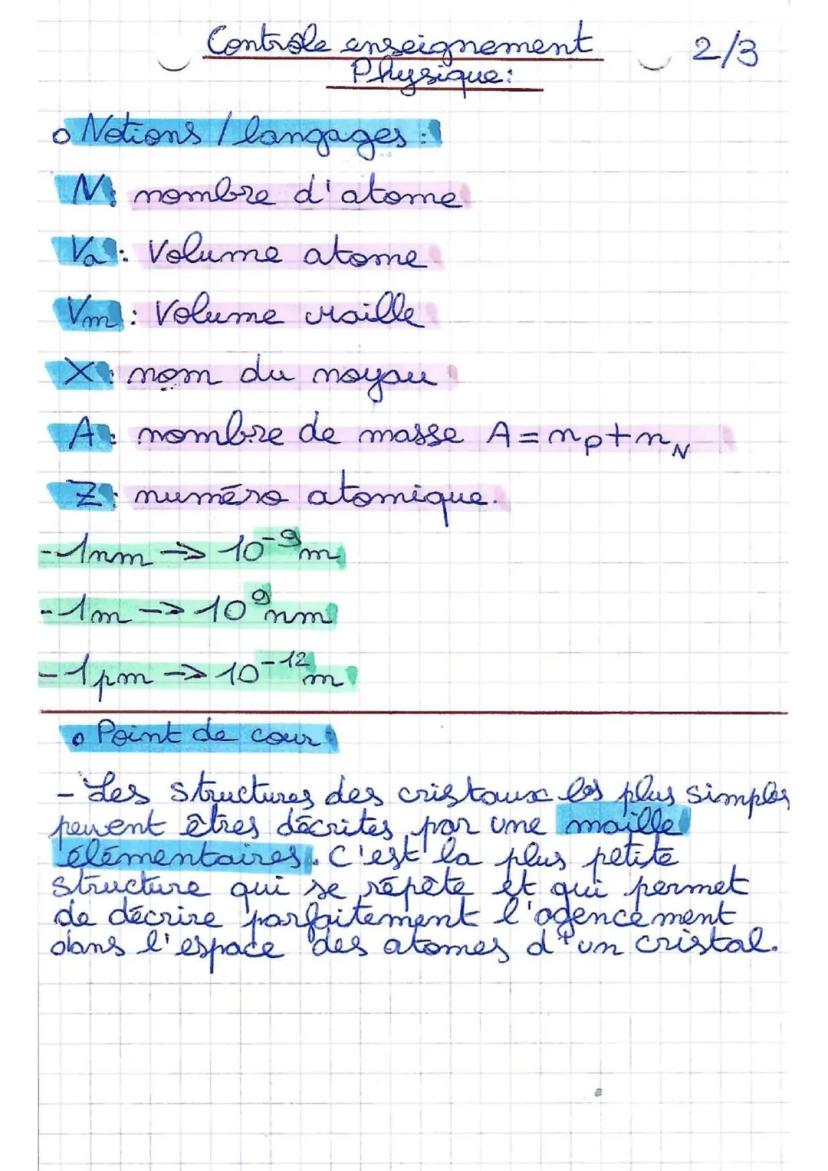 Contrôle enseignement 2/3
Physique:
o Notions / langages :
N: nombre d'atome
Va: Volume atome
Vm: Volume maille
X: nom du noyau
A: nombre de masse A = np + nN
Z: numéro atomique.
- 1nm → 10⁻⁹m
- 1m → 10⁹nm
- 1pm → 10⁻¹²m
o Point de cour:
- Les structures des cristaux les plus simples
peuvent êtres décrites par une maille
élémentaires. C'est la plus petite
structure qui se répète et qui permet
de décrire parfaitement l'agencement
dans l'espace des atomes d'un cristal.